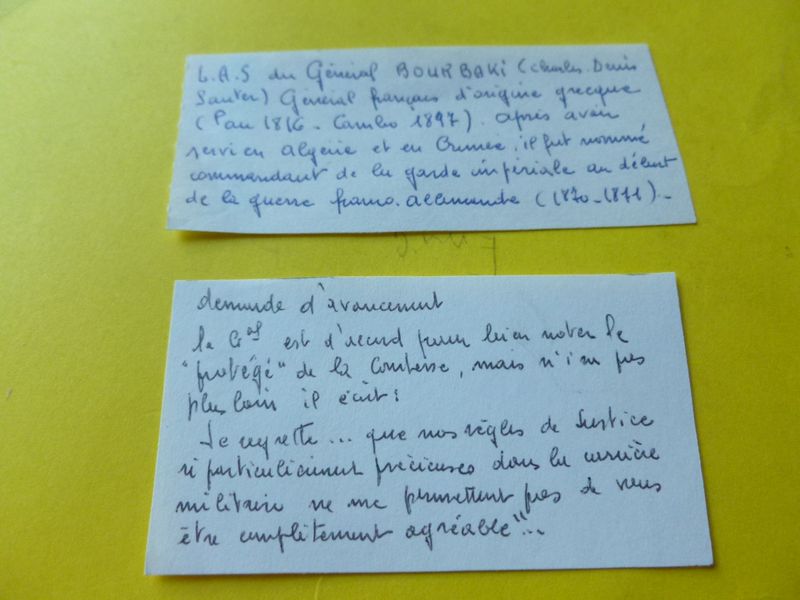 L.A.S du Général BOURBAKI (Charles. Denis
Sauter) Général français d'origine grecque
(Pau 1816 - Cambo 1897). Après avoir
servi en Algérie et en Crimée, il fut nommé
commandant de la garde impériale au début
de la guerre franco-allemande (1870-1871)-
demande d'avancement
le Gal est d'accord pour bien noter le
"protégé" de la Comtesse, mais n'ira pas
plus loin il écrit :
Je regrette... que nos règles de Justice
si particulièrement précieuses dans la carrière
militaire ne me permettent pas de vous
être complètement agréable"...